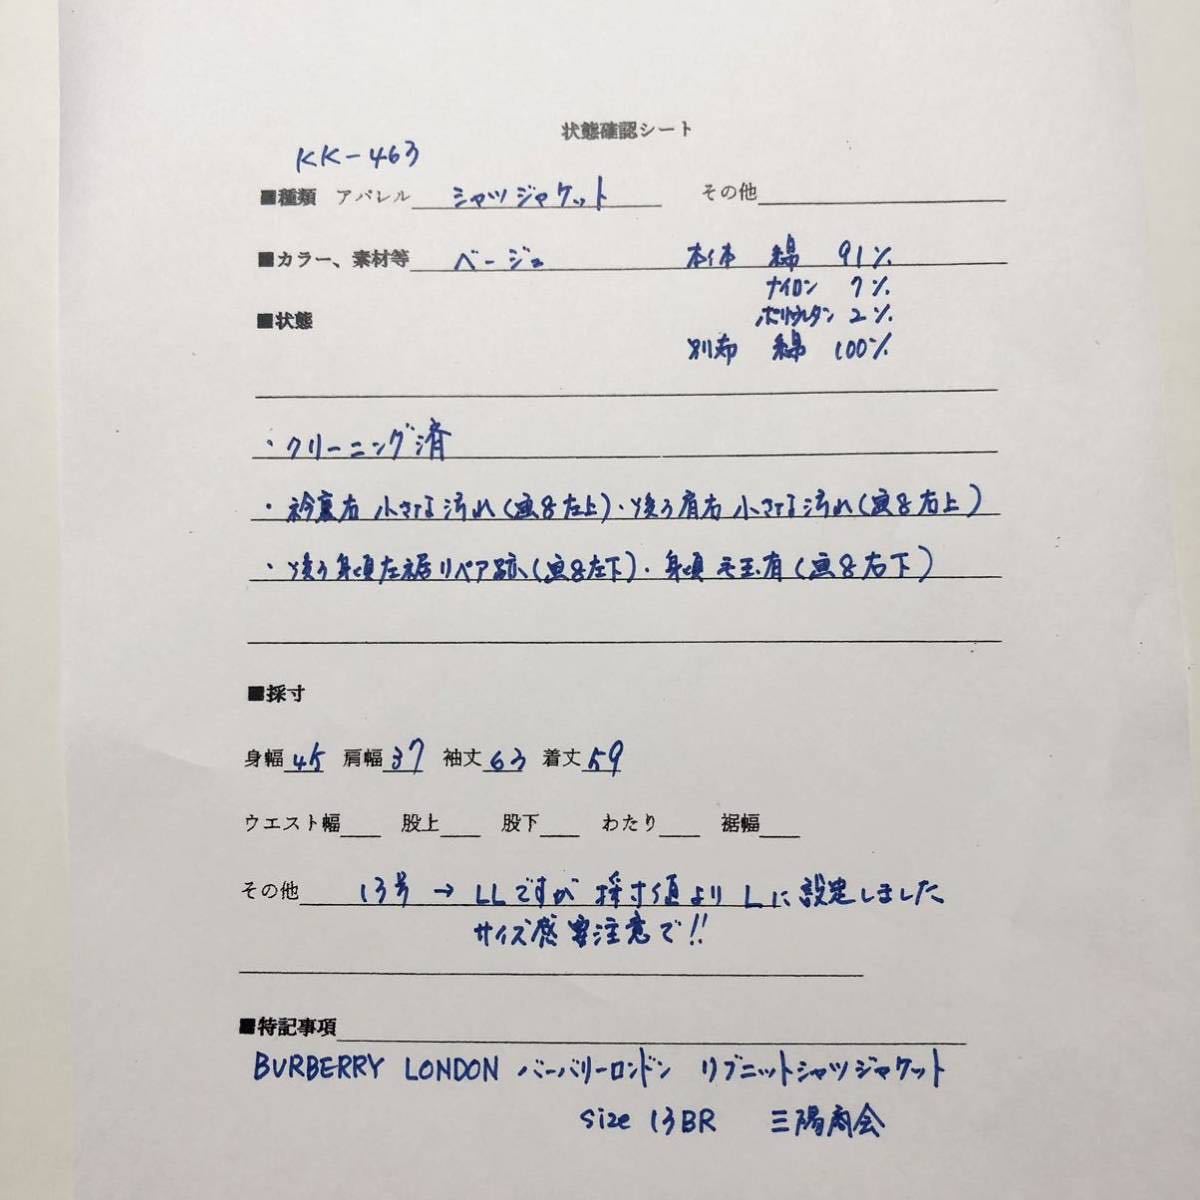 状態確認シート
KK-463
■種類 アパレル シャツジャケット その他
■カラー、素材等 ベージュ 本体 綿 91%
ナイロン 7%
■状態 ポリウレタン 2%
別布 綿 100%
・クリーニング済
・衿裏右 小さな汚れ(画8左上)・後ろ肩右 小さな汚れ(画8右上)
・後ろ身頃左裾リペア跡(画8左下)・身頃 毛玉有(画8右下)
■採寸
身幅 45 肩幅 37 袖丈 63 着丈 59
ウエスト幅 股上 股下 わたり 裾幅
その他 13号 → LLですが 採寸値より Lに設定しました
サイズ感 要注意で!!
■特記事項
BURBERRY LONDON バーバリーロンドン リブニットシャツジャケット
size 13BR 三陽商会